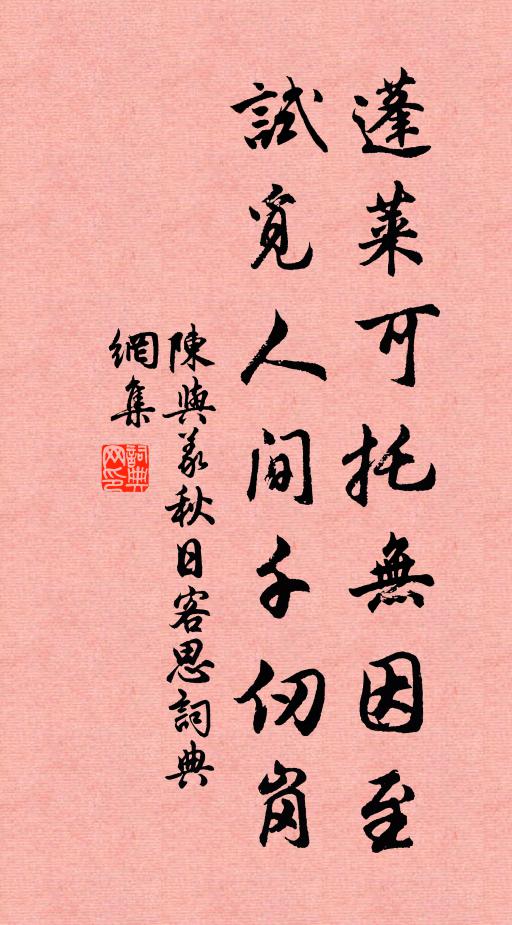 蓬萊可托無因至
試覓人間千仞崗
陳與義秋日客思詞典
網集
詞典網印